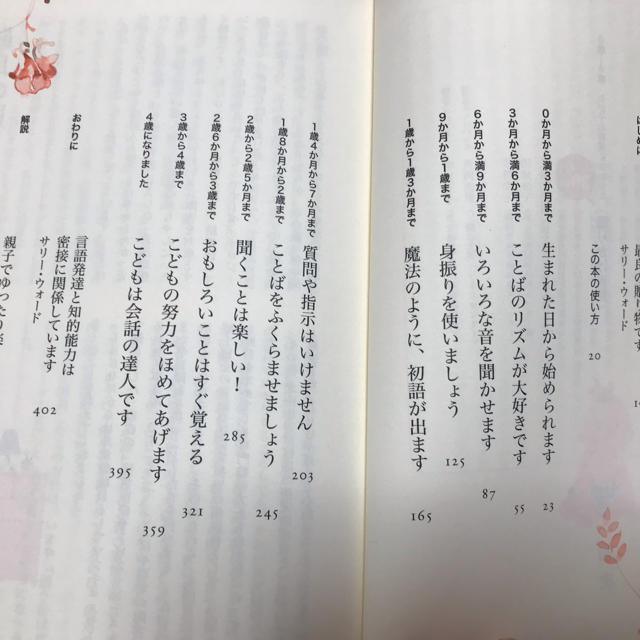 はじめに
サリー・ウォード
この本の使い方
20
0か月から満3か月まで
生まれた日から始められます
23
3か月から満6か月まで
ことばのリズムが大好きです
55
6か月から満9か月まで
いろいろな音を聞かせます
87
9か月から1歳まで
身振りを使いましょう
125
1歳から1歳3か月まで
魔法のように、初語が出ます
165
1歳4か月から7か月まで
質問や指示はいけません
203
1歳8か月から2歳まで
ことばをふくらませましょう
245
2歳から2歳5か月まで
聞くことは楽しい!
285
2歳6か月から3歳まで
おもしろいことはすぐ覚える
321
3歳から4歳まで
こどもの努力をほめてあげます
359
4歳になりました
こどもは会話の達人です
395
おわりに
言語発達と知的能力は
密接に関係しています
サリー・ウォード
402
解説
親子でゆったり